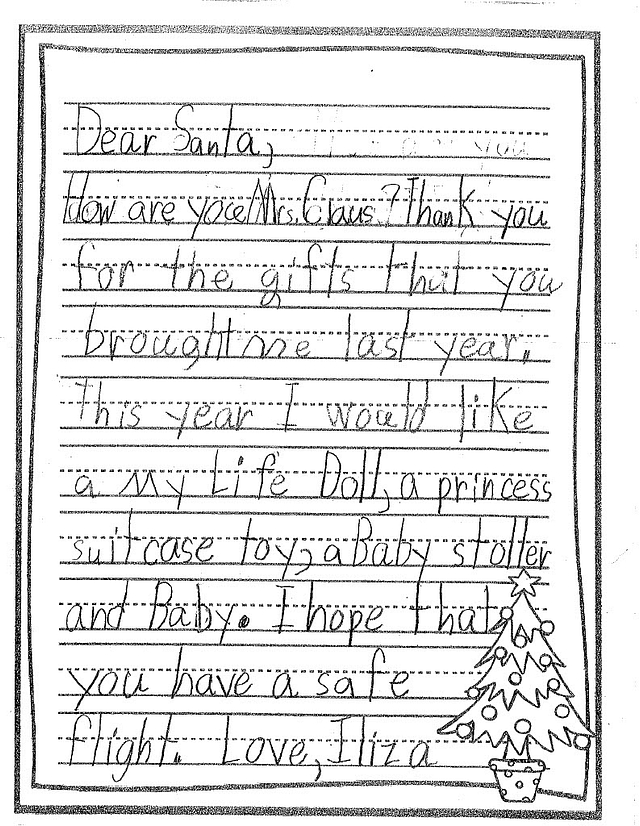 Dear Santa,
How are you Mrs. Claus? Thank you
for the gifts that you
brought me last year.
This year I would like
a My Life Doll, a princess
suitcase toy, a Baby stoller
and Baby. I hope that
you have a safe
flight. Love, Iliza